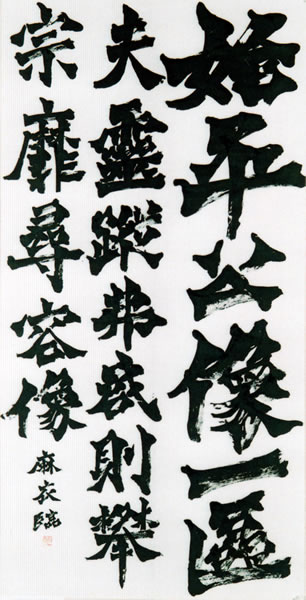 始平公像一區
夫靈蹤弗啓則攀
宗靡尋容像
麻臨